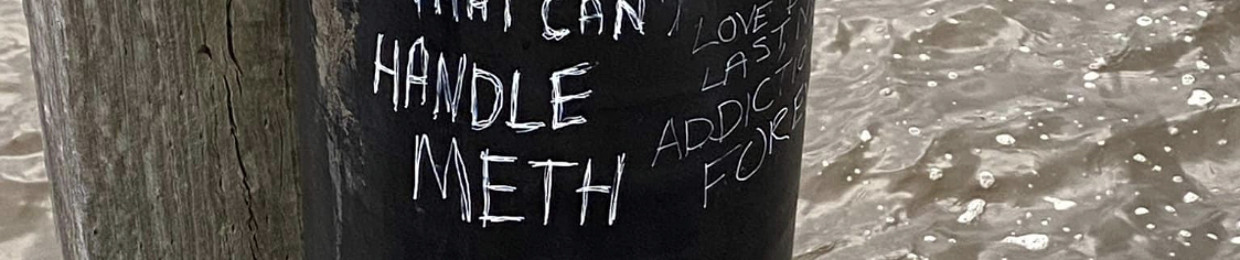 THAT CAN'T
HANDLE
METH
LOVE
LAST
ADDICTIO
FORE